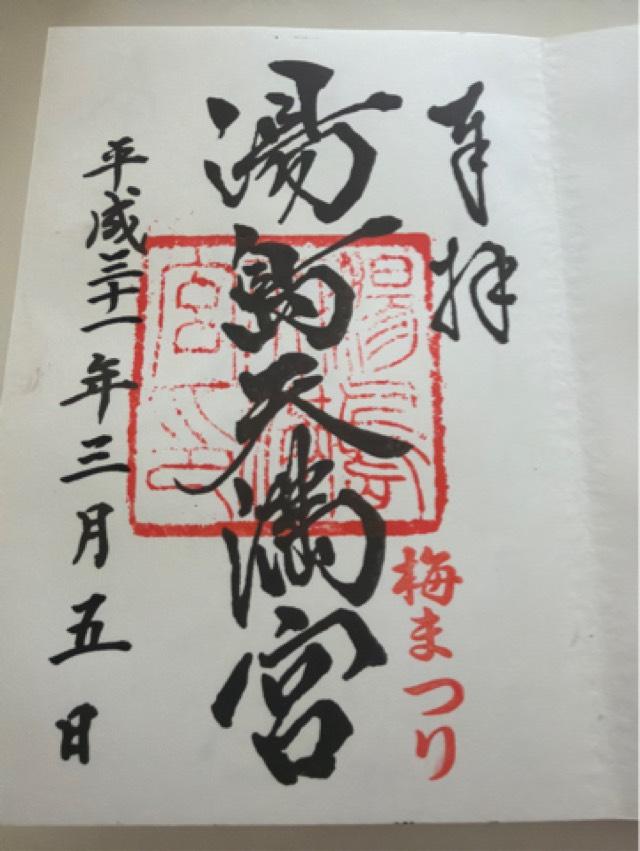 奉拝
湯島天満宮
梅まつり
平成三十一年三月五日